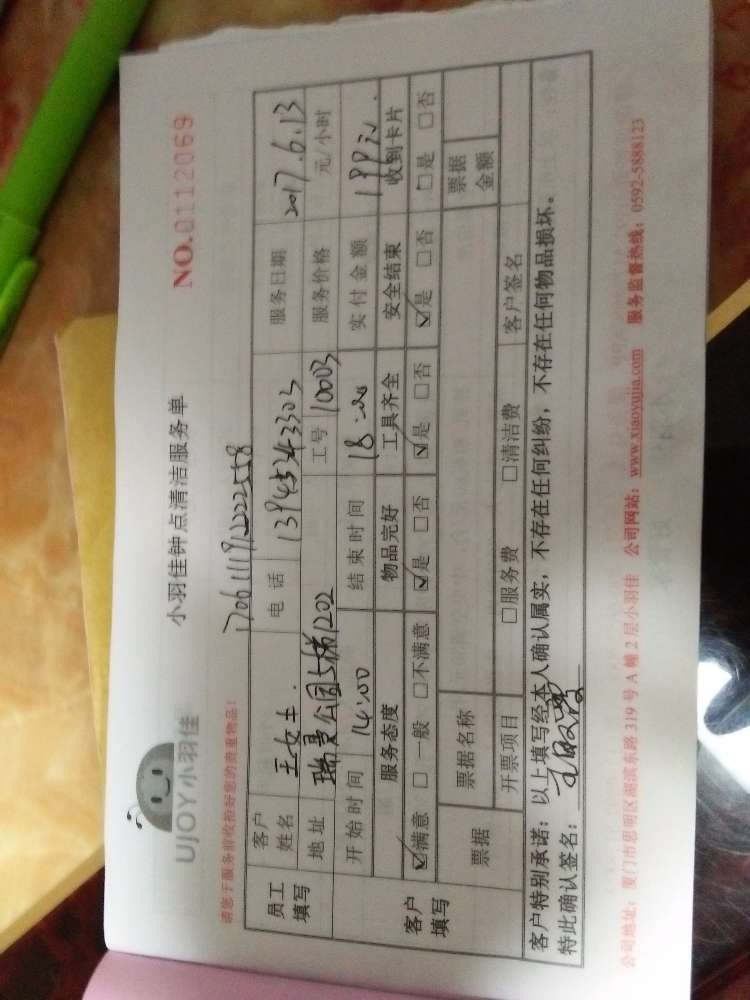 UJOY小羽佳
小羽佳钟点清洁服务单
NO.01112069
请您于服务前收捡好您的贵重物品!
员工填写 客户姓名 王女士. 电话 13945343303 服务日期 2017.6.13
地址 瑞景公园 1202 工号 10003 服务价格 元/小时
开始时间 14:00 结束时间 18:00 实付金额
客户填写 服务态度 物品完好 工具齐全 安全结束 收到卡片
☑满意 □一般 □不满意 ☑是 □否 ☑是 □否 ☑是 □否 □是 □否
票据 票据名称 票据金额
开票项目 □服务费 □清洁费 客户签名
客户特别承诺:以上填写经本人确认属实,不存在任何纠纷,不存在任何物品损坏。
特此确认签名:
公司地址:厦门市思明区湖滨东路319号A幢2层小羽佳 公司网站:www.xiaoyujia.com 服务监督热线:0592-5888123